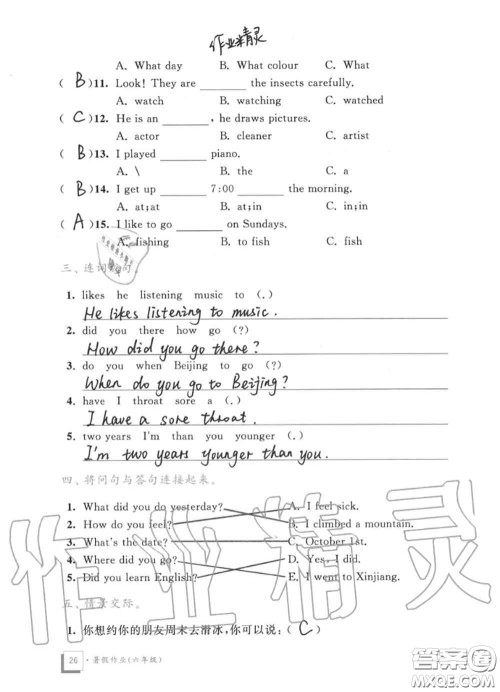 作业精灵
A. What day B. What colour C. What
( B )11. Look! They are ______ the insects carefully.
A. watch B. watching C. watched
( C )12. He is an ______, he draws pictures.
A. actor B. cleaner C. artist
( B )13. I played ______ piano.
A. \ B. the C. a
( B )14. I get up ______ 7:00 ______ the morning.
A. at;at B. at;in C. in;in
( A )15. I like to go ______ on Sundays.
A. fishing B. to fish C. fish
三、连词成句。
1. likes he listening music to (.)
He likes listening to music.
2. did you there how go (?)
How did you go there?
3. do you when Beijing to go (?)
When do you go to Beijing?
4. have I throat sore a (.)
I have a sore throat.
5. two years I'm than you younger (.)
I'm two years younger than you.
四、将问句与答句连接起来。
1. What did you do yesterday? A. I feel sick.
2. How do you feel? B. I climbed a mountain.
3. What's the date? C. October 1st.
4. Where did you go? D. Yes, I did.
5. Did you learn English? E. I went to Xinjiang.
五、情景交际。
1. 你想约你的朋友周末去滑冰,你可以说:( C )
26 ·暑假作业(六年级)
作业精灵